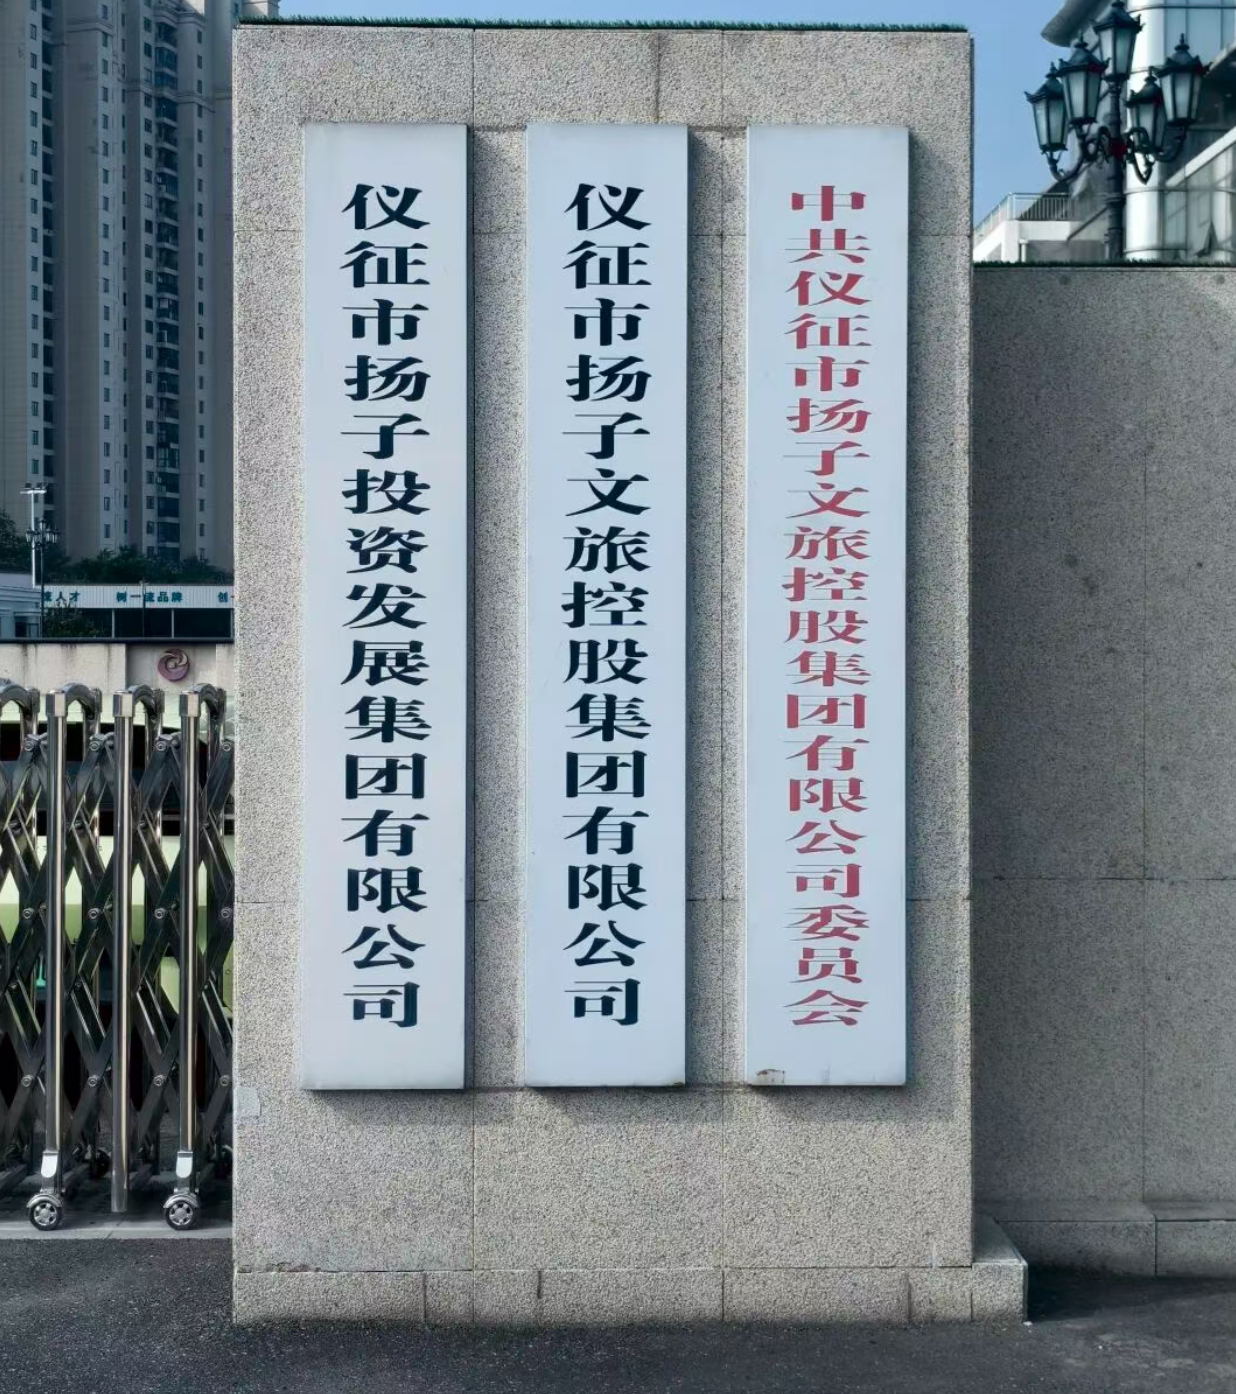 仪征市扬子投资发展集团有限公司
仪征市扬子文旅控股集团有限公司
中共仪征市扬子文旅控股集团有限公司委员会
人才 树一流品牌 创